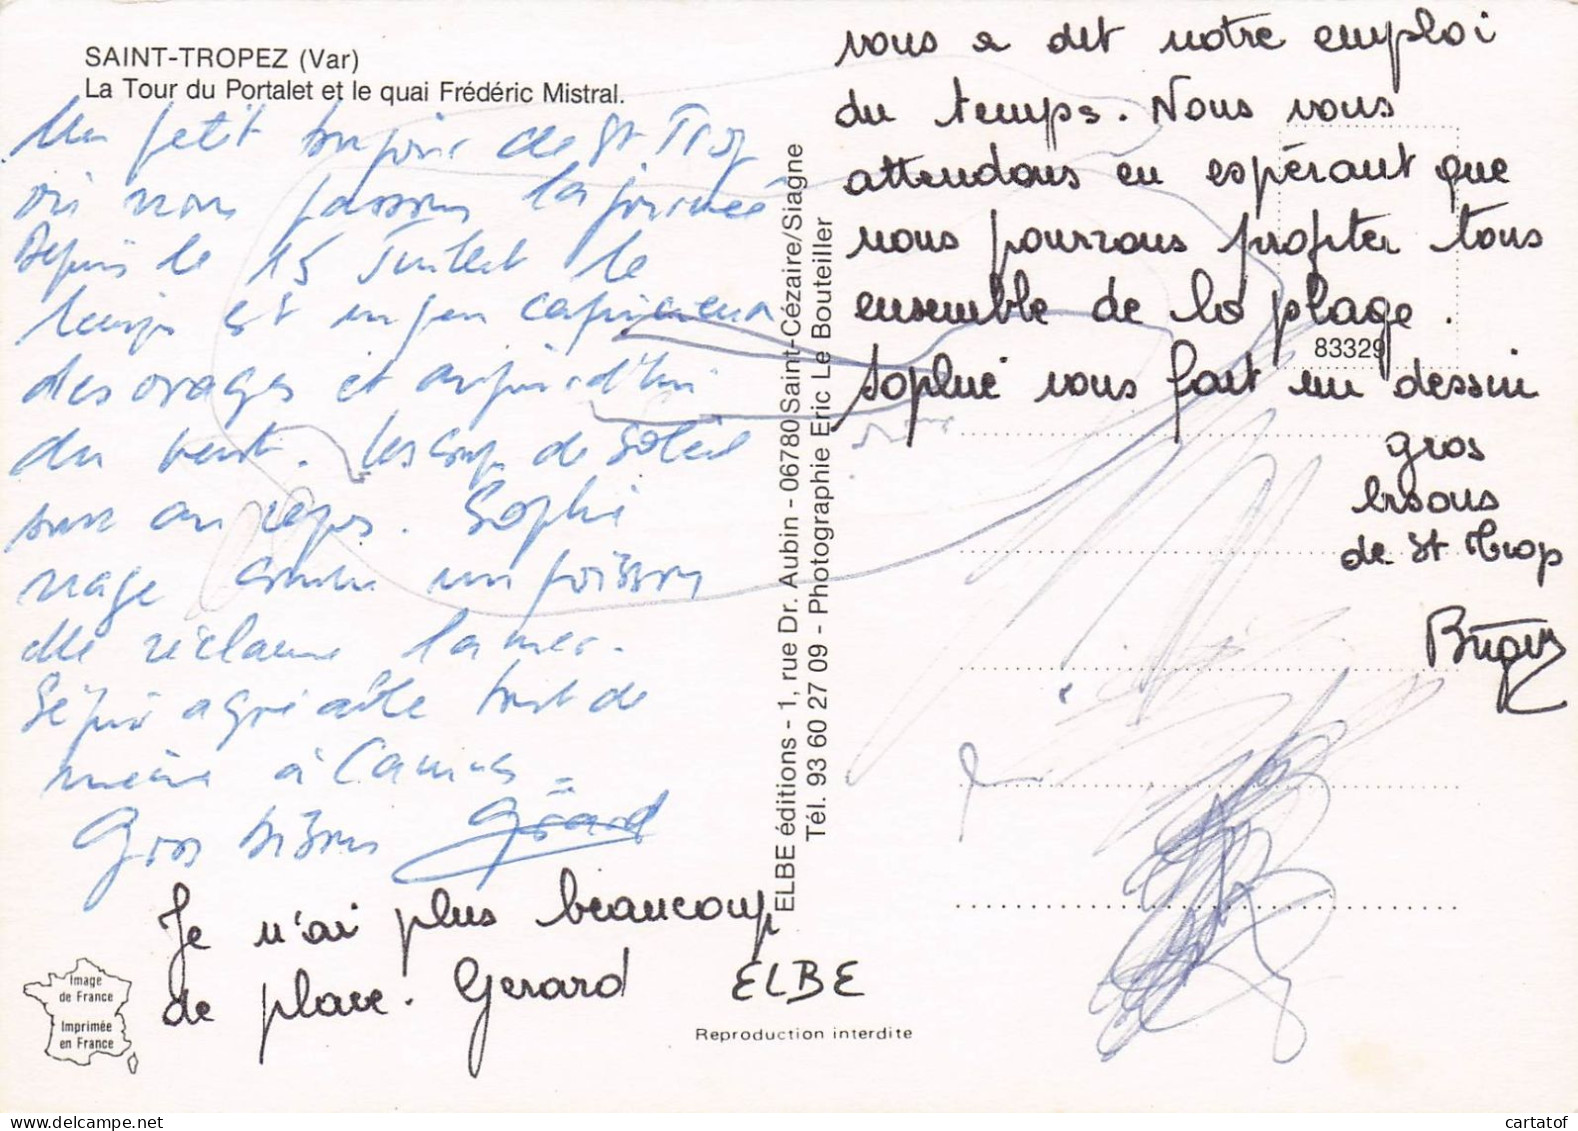 SAINT-TROPEZ (Var)
La Tour du Portalet et le quai Frédéric Mistral.
Un petit bonjour de St Trop
où nous passons la journée
Depuis le 15 Juillet le
temps est un peu capricieux
des orages et aujourd'hui
du vent. Les coups de Soleil
sont au repos. Sophie
nage comme un poisson
elle réclame la mer.
Séjour agréable tout de
même à Cannes
Gros bisous Gérard
Je n'ai plus beaucoup
de place. Gerard
vous a dit notre emploi
du temps. Nous vous
attendons en espérant que
nous pourrons profiter tous
ensemble de la plage.
Sophie vous fait un dessin
gros
bisous
de St Trop
83329
ELBE éditions - 1, rue Dr. Aubin - 06780 Saint-Cézaire/Siagne
Tél. 93 60 27 09 - Photographie Eric Le Bouteiller
Image
de France
Imprimée
en France
ELBE
Reproduction interdite
cartatof